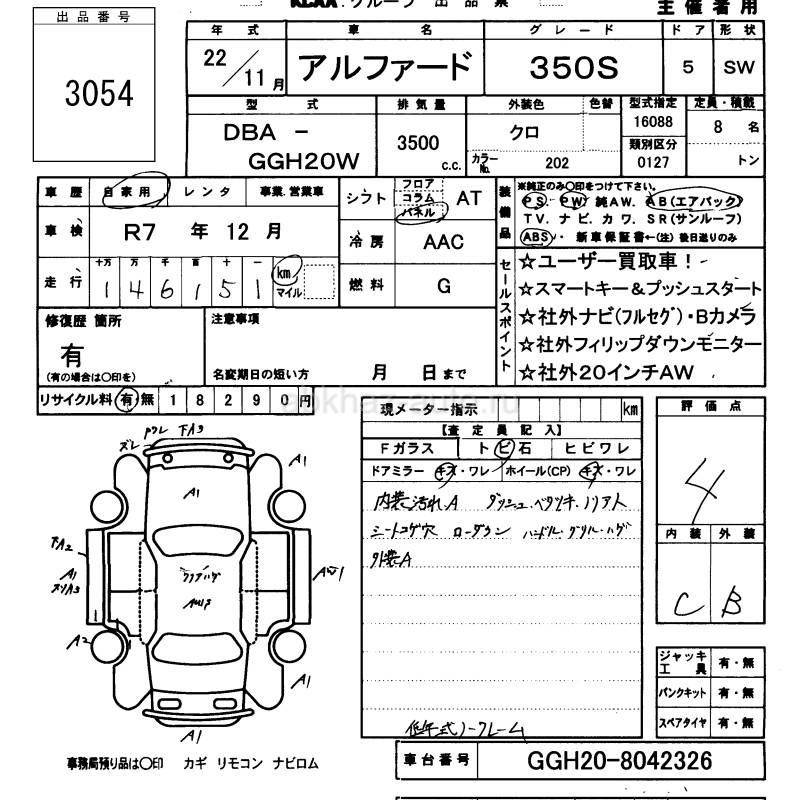 KCAA グループ 出品票 主催者用
出品番号
3054
年式 車名 グレード ドア 形状
22/11月 アルファード 350S 5 SW
型式 排気量 外装色 色替 型式指定 定員・積載
DBA - GGH20W 3500 c.c. クロ カラーNo. 202 16088 類別区分 0127 8名 トン
車歴 自家用 レンタ 事業.営業車
車検 R7年12月
走行 十万 万 千 百 十 一
1 4 6 1 5 1 km マイル
シフト フロア コラム パネル AT
冷房 AAC
燃料 G
装備品 ※純正のみ○印をつけて下さい。
PS. PW. 純AW. AB(エアバック)
TV. ナビ. カワ. SR(サンルーフ)
ABS. 新車保証書←(注)後日送りのみ
セールスポイント
☆ユーザー買取車!
☆スマートキー&プッシュスタート
☆社外ナビ(フルセグ)・Bカメラ
☆社外フィリップダウンモニター
☆社外20インチAW
修復歴 箇所
有
(有の場合は○印を)
注意事項
名変期日の短い方 月 日まで
リサイクル料 有 無 18290円
abkhaz-auto.ru
現メーター指示 km
【査定員記入】
Fガラス トビ石 ヒビワレ
ドアミラー キズ・ワレ ホイール(CP) キズ・ワレ
内装汚れA ダッシュ.ベタツキ.
シートコゲ穴 ローダウン ハンドル.グリル.ハゲ
外装A
低年式ノークレーム
評価点
4
内装 外装
C B
ジャッキ 工具 有・無
パンクキット 有・無
スペアタイヤ 有・無
ズレ ワレ 下A3
A1
A1
下A2
A1
クリアハゲ
A2
A1
A1
事務局預り品は○印 カギ リモコン ナビロム
車台番号 GGH20-8042326